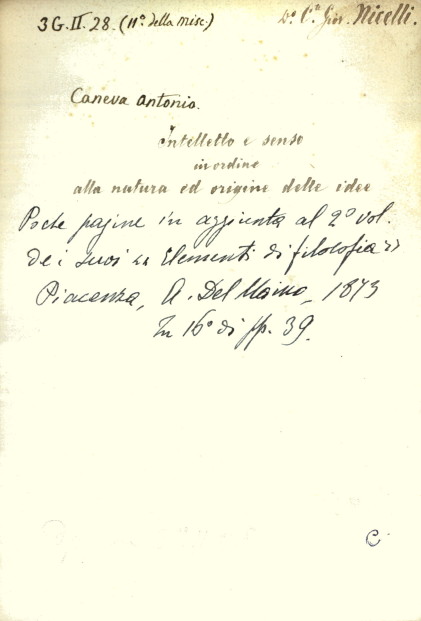 3G.II.28. (11º della misc.)
Dº. Cº. Giu. Nicelli.
Caneva Antonio.
Intelletto e senso
in ordine
alla natura ed origine delle idee
Poche pagine in aggiunta al 2º vol.
dei suoi « Elementi di filosofia »
Piacenza, A. Del Maino, 1873
In 16º di pp. 39.
C